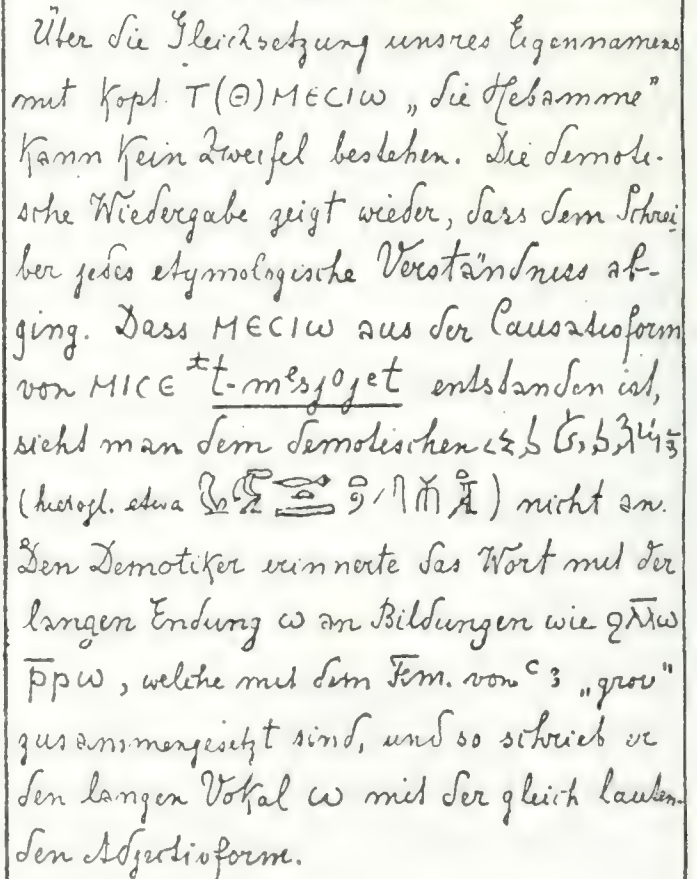 Über die Gleichsetzung unsres Eigennamens
mit kopt. Τ(Θ)ΜΕCΙω „die Hebamme"
kann kein Zweifel bestehen. Die demoti-
sche Wiedergabe zeigt wieder, dass dem Schrei-
ber jedes etymologische Verständniss ab-
ging. Dass ΜΕCΙω aus der Causativform
von ΜΙCΕ *t-mesjojet entstanden ist,
sieht man dem demotischen
(hierogl. etwa ) nicht an.
Den Demotiker erinnerte das Wort mit der
langen Endung ω an Bildungen wie
p̄pω, welche mit dem Fem. von ꜥꜣ „gross"
zusammengesetzt sind, und so schrieb er
den langen Vokal ω mit der gleich lauten-
den Adjectivform.